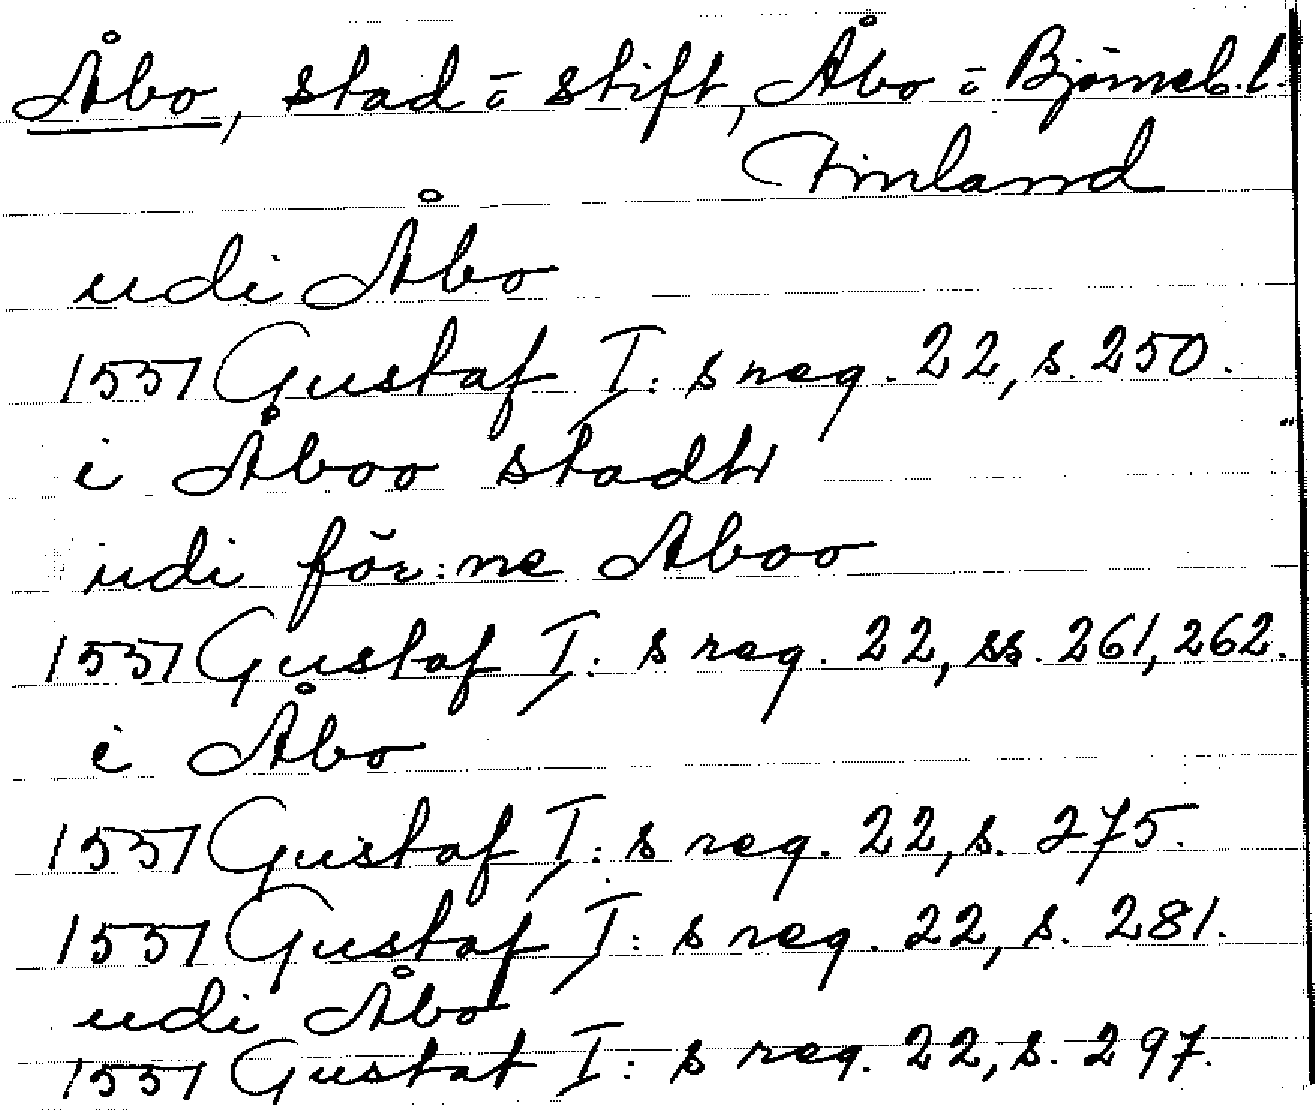 Åbo, stad ō stift, Åbo ō Björneb. l.
Finland
udi Åbo
1551 Gustaf I:s reg. 22, s. 250.
i Åboo stadh
udi för:ne Aboo
1551 Gustaf I:s reg. 22, ss. 261, 262.
i Åbo
1551 Gustaf I:s reg. 22, s. 275.
1551 Gustaf I:s reg. 22, s. 281.
udi Åbo
1551 Gustaf I:s reg. 22, s. 297.